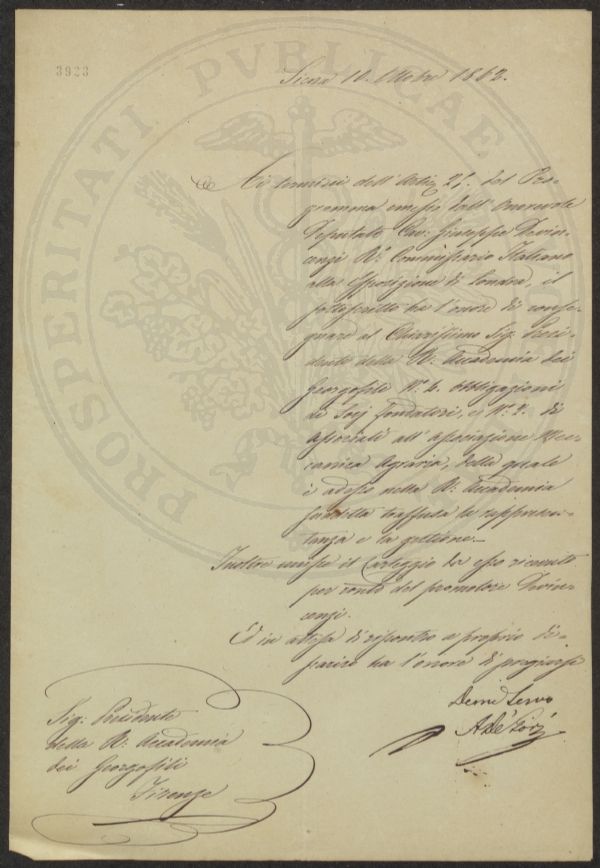 3923
PROSPERITATI PVBLICAE
Siena 10. Ottobre 1862.
Ai termini dell'Artic. 21. del Pro-
gramma emesso dall'Onorevole
Deputato Cav: Giuseppe Devin-
cenzi R.o Commissario Italiano
alla Esposizione di Londra, il
sottoscritto ha l'onore di conse-
gnare al Chiarissimo Sig. Presi-
dente della R: Accademia dei
Georgofili N.o 4. obbligazioni
di Socj fondatori, e N.o 2. di
associati all'associazione Mec-
canica Agraria, della quale
è adesso nella R: Accademia
trasfusa la rappresen-
tanza e la gestione.
Inoltre unisce il Carteggio da esso tenuto
per conto del promotore Devin-
cenzi.
E in attesa di riscontro a proprio di-
scarico ha l'onore di
Devmo Servo
Sig: Presidente
della R: Accademia
dei Georgofili
Firenze